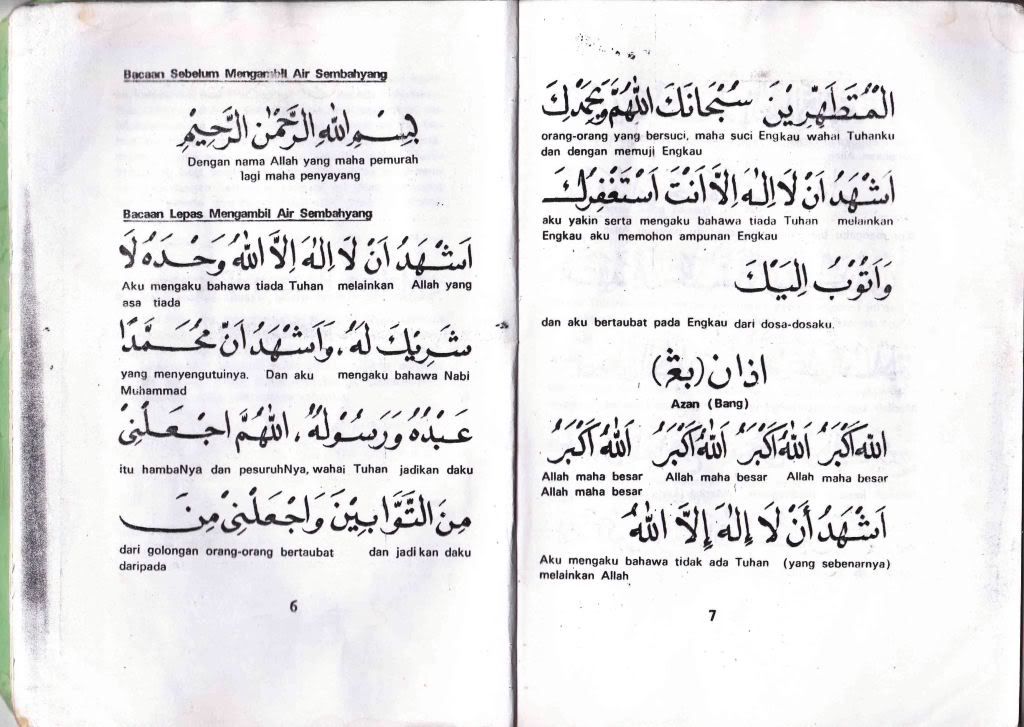 Bacaan Sebelum Mengambil Air Sembahyang
بِسْمِ اللهِ الرَّحْمٰنِ الرَّحِيْمِ
Dengan nama Allah yang maha pemurah
lagi maha penyayang
Bacaan Lepas Mengambil Air Sembahyang
اَشْهَدُ اَنْ لَا اِلٰهَ اِلَّا اللهُ وَحْدَهُ لَا
Aku mengaku bahawa tiada Tuhan melainkan Allah yang
asa tiada
شَرِيْكَ لَهُ، وَاَشْهَدُ اَنَّ مُحَمَّدًا
yang menyengutuinya. Dan aku mengaku bahawa Nabi
Muhammad
عَبْدُهُ وَرَسُوْلُهُ، اَللّٰهُمَّ اجْعَلْنِيْ
itu hambaNya dan pesuruhNya, wahai Tuhan jadikan daku
مِنَ التَّوَّابِيْنَ وَاجْعَلْنِيْ مِنَ
dari golongan orang-orang bertaubat dan jadikan daku
daripada
6
الْمُتَطَهِّرِيْنَ سُبْحَانَكَ اللّٰهُمَّ وَبِحَمْدِكَ
orang-orang yang bersuci, maha suci Engkau wahai Tuhanku
dan dengan memuji Engkau
اَشْهَدُ اَنْ لَا اِلٰهَ اِلَّا اَنْتَ اَسْتَغْفِرُكَ
aku yakin serta mengaku bahawa tiada Tuhan melainkan
Engkau aku memohon ampunan Engkau
وَاَتُوْبُ اِلَيْكَ
dan aku bertaubat pada Engkau dari dosa-dosaku.
اذان (بڠ)
Azan (Bang)
اَللهُ اَكْبَرُ اَللهُ اَكْبَرُ اَللهُ اَكْبَرُ اَللهُ اَكْبَرُ
Allah maha besar Allah maha besar Allah maha besar
Allah maha besar
اَشْهَدُ أَنْ لَا إِلٰهَ إِلَّا اللهُ
Aku mengaku bahawa tidak ada Tuhan (yang sebenarnya)
melainkan Allah
7